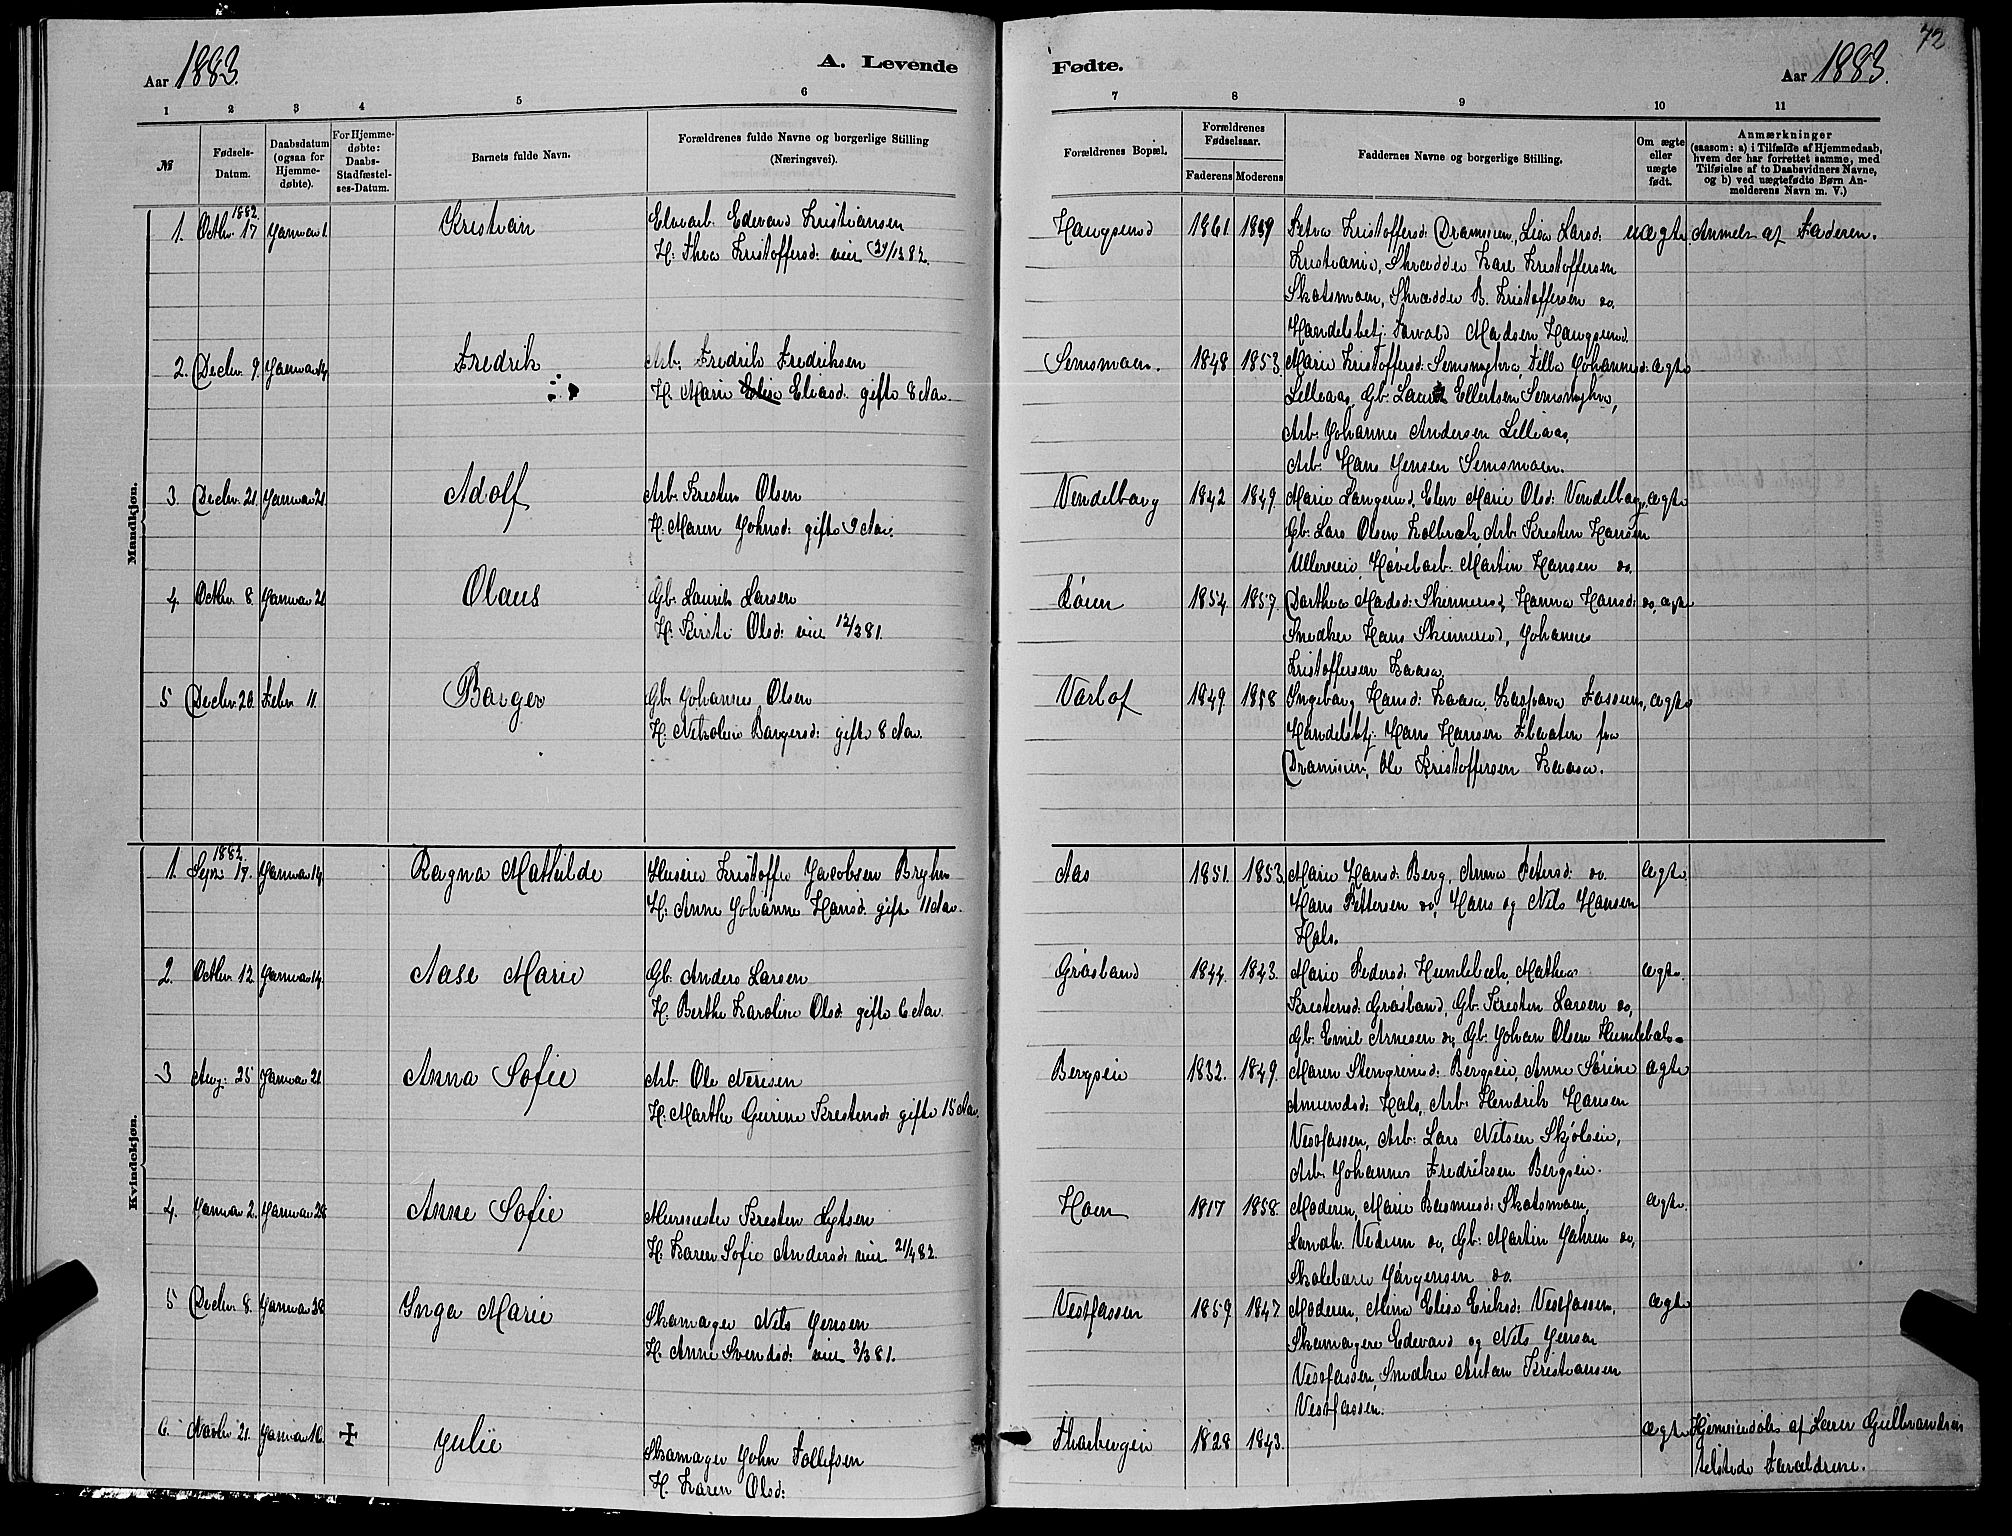 Aar 1883.
A. Levende
1 2 3 4 5 6
№
Fødsels-Datum.
Daabsdatum (ogsaa for Hjemme-døbte).
For Hjemme-døbte: Daabs-Stadfæstel-ses-Datum.
Barnets fulde Navn.
Forældrenes fulde Navne og borgerlige Stilling
(Næringsvei).
Mandkjøn.
1882
1. Octbr. 17 Januar 1. Kristian Edevard Kristiansen
H: Thea Kristoffersd:
2. Decbr. 9. Januar 14 Fredrik Arb. Fredrik Fredriksen
H. Marie Elise Eliasd. gifte 8 Aar.
3. Decbr. 21. Januar 21 Adolf Arb. Kresten Olsen
H. Maren Johnsd: gifte 9 Aar.
4. Octbr. 8. Januar 21 Olaus Gb. Laurits Larsen
H. Kirsti Olsd: viet 12/3 81.
5 Decbr. 20. Febr. 11. Børger Gb. Johannes Olsen
H: Nikoline Børgersd: gifte 8 Aar.
Kvindekjøn.
1882
1. Sept. 17. Januar 14. Ragna Mathilde Kristoffer Jacobsen
H. Anne Johanne Hansd. gifte 11 Aar.
2. Octbr. 12. Januar 14. Aase Marie Gb. Anders Larsen
H: Berthe Karoline Olsd. gifte 6 Aar.
3 Aug: 25 Januar 21. Anna Sofie Arb. Ole
H. Marthe Gurine Krestensd. gifte 15 Aar.
4. Januar 2. Januar 28 Anne Sofie Murmester Kresten
H. Karen Sofie Andersd. viet 21/4 82.
5 Decbr. 8. Januar 28. Inga Marie Skomager Nils Jensen
H. Anne Svendsd: viet 3/3 81.
6. Novbr. 21. Januar 16. Julie Skomager John Tollefsen
H. Karen Olsd:
72
Fødte.
Aar 1883.
7 8 9 10 11
Forældrenes Bopæl.
Forældrenes Fødselsaar.
Faderens Moderens
Faddernes Navne og borgerlige Stilling.
Om ægte eller uægte født.
Anmærkninger
(saasom: a) i Tilfælde af Hjemmedaab,
hvem der har forrettet samme, med
Tilføielse af to Daabsvidners Navne,
og b) ved uægtefødte Børn An-
melderens Navn m. V.)
Haugsund 1861 1859 Petra Kristoffersd: Drammen, Lina Larsd: uægte Anmelt af Faderen.
Kristiania, Skrædder Karl Kristoffersen
Skotsmoen, Skrædder B. Kristoffersen do.
Handelsbetj. Madsen Haugsund.
Semsmoen. 1848 1853. Marie Kristoffersd: Johannesd: ægte
Lilleaas, Gb. Ellertsen
Arb. Johannes Andersen Lilleaas,
Arb. Hans Jensen Semsmoen.
Vendelborg 1842 1849. Marie Elen Marie Olsd: Vendelborg, ægte
Gb. Lars Olsen Arb. Kresten Hansen
Martin Hansen do.
1854 1857. Dorthea Madsd: Hanna Hansd: do. ægte
Snedker Hans Johannes
Kristoffersen Kaasa.
Varlof 1849. 1858 Ingeborg Hansd: Kaasa, Fossum, ægte
Handelsbtj. Hans Hansen fra
Drammen, Ole Kristoffersen Kaasa.
Aas 1851. 1853. Marie Hansd. Berg, Anna Petersd: do. ægte
Hans Pettersen do, Hans og Nils Hansen
Hals.
Grøsland 1844. 1843. Marie Pedersd. Mathea ægte.
Krestensd. Grøsland, Gb. Kresten Larsen do,
Gb. Emil Arnesen do, Gb. Johan Olsen
Bergseie 1832. 1849. Maren Stengrimsd: Bergseie, Anne Sørine ægte
Amundsd: Hals, Arb. Hendrik Hansen
Vestfossen, Arb: Lars Nilsen
Arb. Johannes Fredriksen Bergseie.
Hoen 1817 1858. Moderen, Marie Rasmusd: Skotsmoen, ægte.
do, Gb: Martin do,
Jørgensen do.
Vestfossen 1859. 1847. Moderen, Mina Elise Eriksd: Vestfossen, ægte
Skomagere Edevard og Nils Jensen
Vestfossen, Snedker Anton Kristiansen
Vestfossen.
1828 1843. ægte Hjemmedøbt af Lærer Gulbrandsen
tilstede Forældrene.